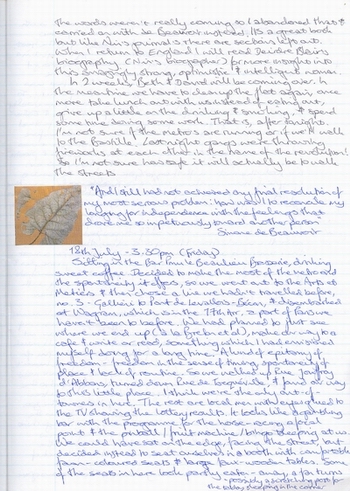 The words weren't really coming so I abandoned that &
carried on with de Beauvoir instead. It's a great book
but like Nin's journals there are sections left out.
When I return to England I will read Deirdre Blair's
biography (Nin's biographer) for more insight into
this amazingly strong, optimistic & intelligent woman.
In 2 weeks, Beth & David will be coming over. In
the meantime we have to clean up the flat again, once
more take lunch out with us instead of eating out,
give up a little on the drinking & smoking, & spend
some time doing some work. That is, after tonight.
I'm not sure if the metro's are running or if we'll walk
to the Bastille. Last night gangs were throwing
fireworks at each other in the name of the revolution!
So I'm not sure how safe it will actually be to walk
the streets
"And I still had not achieved any final resolution of
my most serious problem: how was I to reconcile my
longing for independence with the feelings that
drove me so impetuously toward another person"
Simone de Beauvoir
18th July - 3.30pm (Friday)
Sitting in the Bar Brasserie, drinking
sweet coffee. Decided to make the most of the metro and
the spontaneity it offers, so we went out to the Arts et
Métiers & then chose a line we hadn't travelled before,
no. 3 - Gallieni to Pont de Levallois-Bécon, & disembarked
at Wagram, which is in the 17th Arr, a part of Paris we
haven't been to before. We had planned to just see
where we end up (is to get lost a bit), make our way to a
café & write or read, something which I had envisioned
myself doing for a long time. A kind of epitomy of
freedom - freedom in the sense of time, spontaneity of
place & lack of routine. So we walked up Rue Jouffroy
d'Abbans, turned down Rue de Tocqueville, & found our way
to this little place. I think we're the only out-of-
towners in here. The rest are local men with eyes glued to
the TV showing the lottery results. It looks like a gambling
bar with the programme for the horse-racing a focal
point & the pinball / fruit machine / bingo beeping at us.
We could have sat on the edge, facing the street, but
decided instead to seat ourselves in a booth with comfortable
seats & large wooden tables. Some
of the seats in here look partly eaten away, as far turns
possibly a scratching post for
the tabby sleeping in the corner